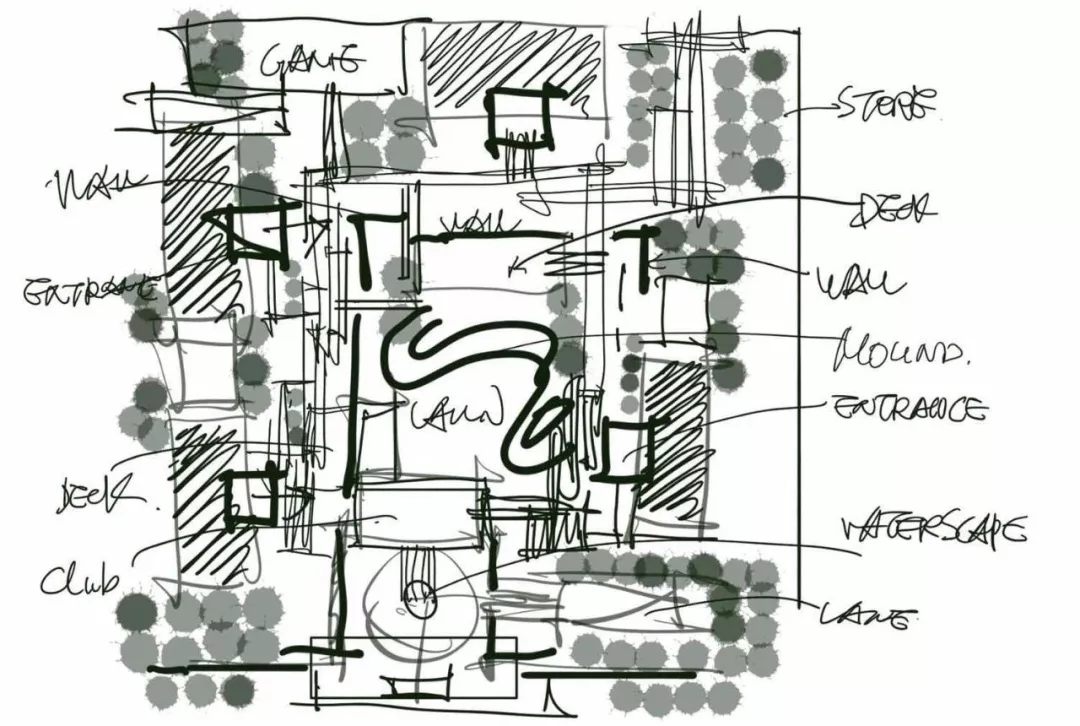 GAME
STONE
WALL
WALL
DECK
ENTRANCE
WALL
MOUND.
LAWN
ENTRANCE
DECK.
WATERSCAPE
Club
LANE